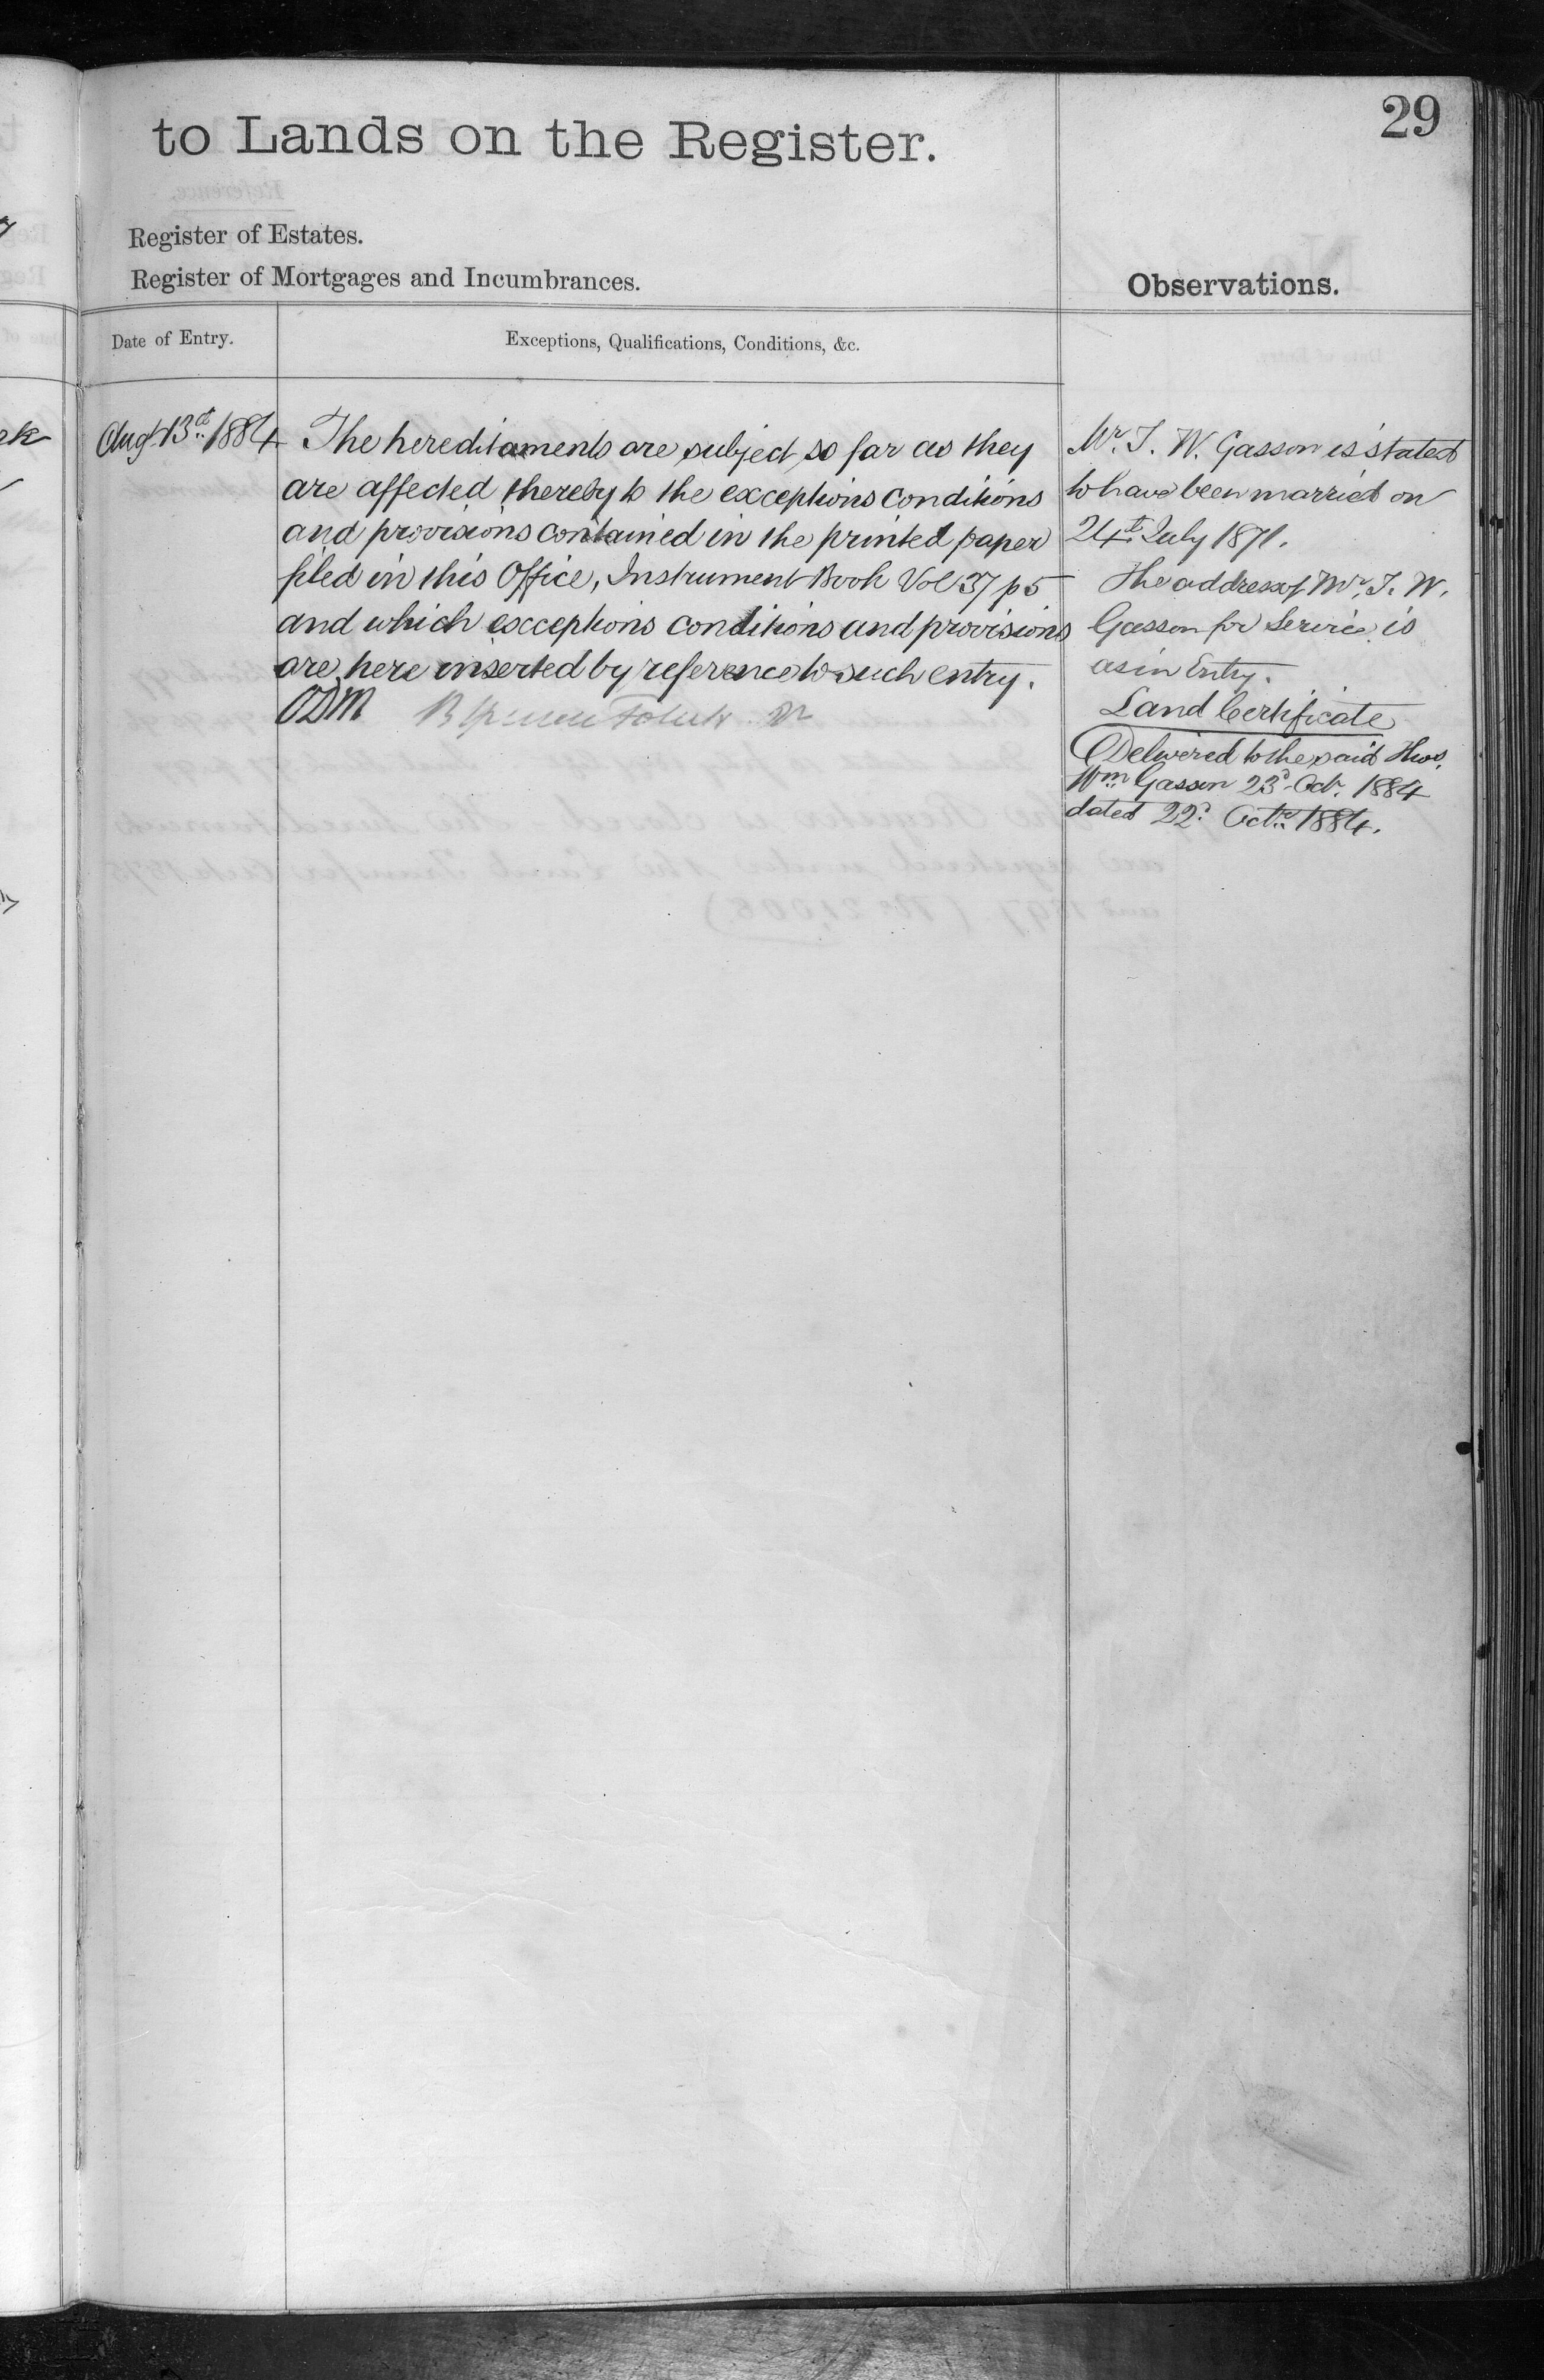 29
to Lands on the Register.
Register of Estates.
Register of Mortgages and Incumbrances.
Observations.
Date of Entry.
Exceptions, Qualifications, Conditions, &c.
Augt. 13d. 1884
The hereditaments are subject so far as they
are affected thereby to the exceptions conditions
and provisions contained in the printed paper
filed in this Office, Instrument Book Vol 37 p 5
and which exceptions conditions and provisions
are here inserted by reference to such entry.
ODM
Mr. T. W. Gasson is stated
to have been married on
24th July 1871.
The address of Mr. T. W.
Gasson for Service is
as in Entry.
Land Certificate
Delivered to the said Thos.
Wm Gasson 23d Octr. 1884
dated 22d Octr. 1884.